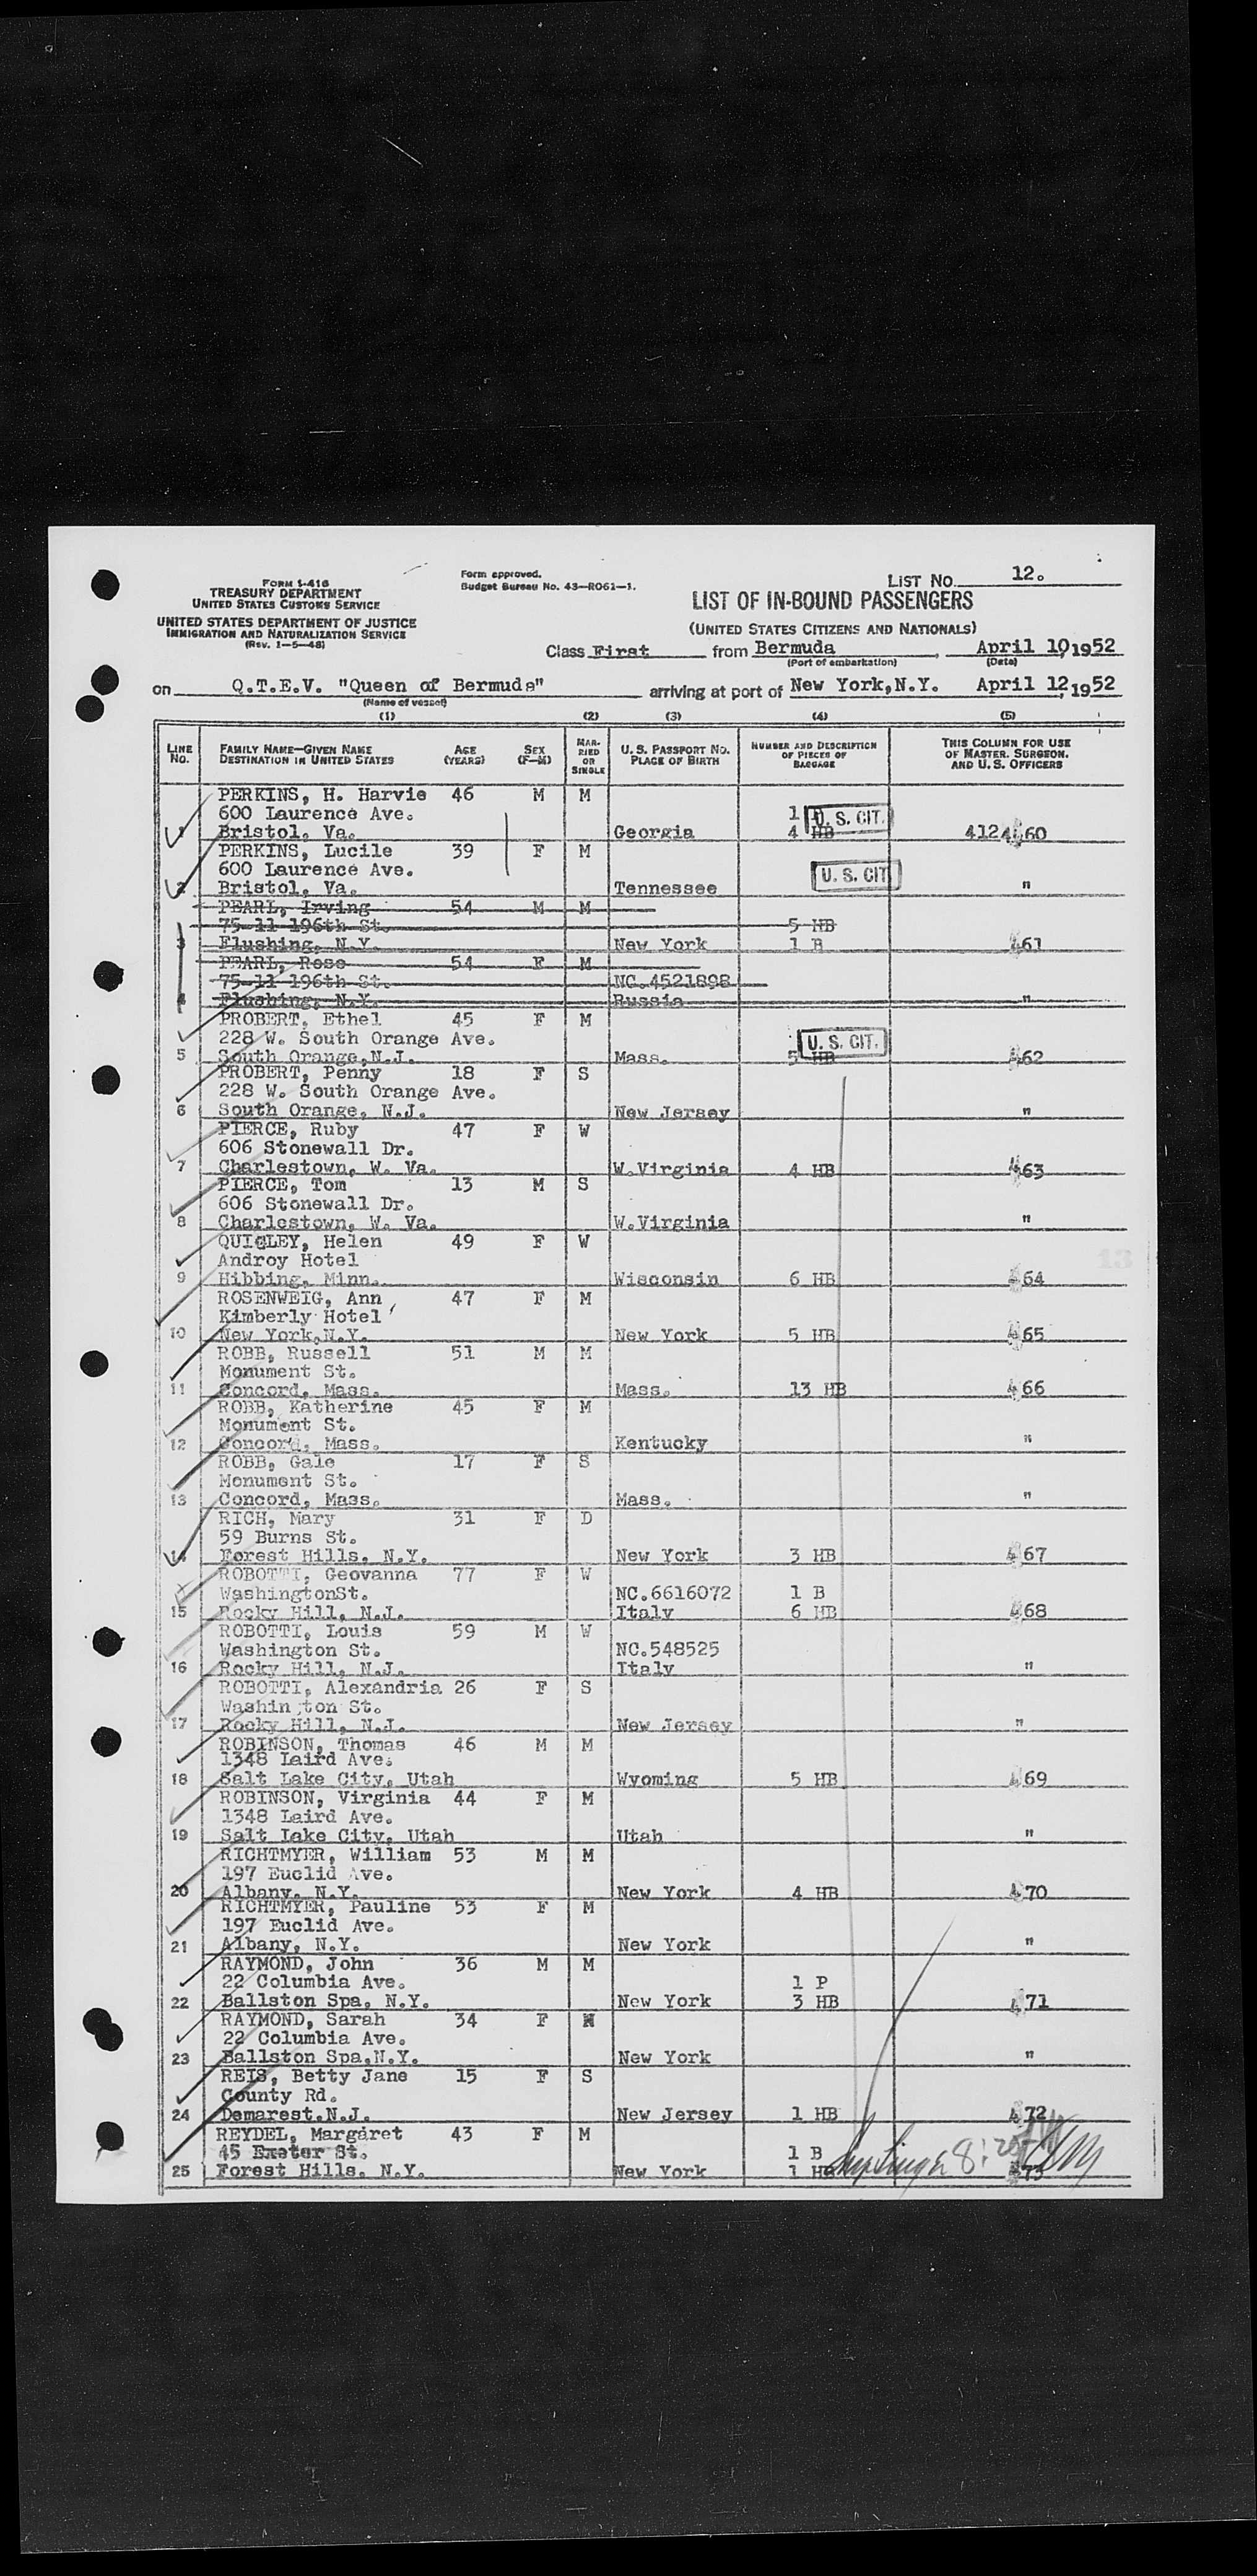 Form I-416
TREASURY DEPARTMENT
UNITED STATES CUSTOMS SERVICE
UNITED STATES DEPARTMENT OF JUSTICE
IMMIGRATION AND NATURALIZATION SERVICE
(Rev. 1-5-48)
Form approved.
Budget Bureau No. 43-R061-1.
LIST NO. 12.
LIST OF IN-BOUND PASSENGERS
(UNITED STATES CITIZENS AND NATIONALS)
Class First from Bermuda, April 10, 1952
(Port of embarkation) (Date)
on Q.T.E.V. "Queen of Bermuda" arriving at port of New York, N.Y. April 12, 1952
(Name of vessel)
(1) (2) (3) (4) (5)
LINE NO. FAMILY NAME—GIVEN NAME DESTINATION IN UNITED STATES AGE (YEARS) SEX (F-M) MARRIED OR SINGLE U. S. PASSPORT NO. PLACE OF BIRTH NUMBER AND DESCRIPTION OF PIECES OF BAGGAGE THIS COLUMN FOR USE OF MASTER, SURGEON, AND U. S. OFFICERS
PERKINS, H. Harvie 46 M M
600 Laurence Ave. 1 U. S. CIT.
1 Bristol, Va. Georgia 4 HB 412460
PERKINS, Lucile 39 F M
600 Laurence Ave. U. S. CIT
2 Bristol, Va. Tennessee "
PEARL, Irving 54 M M
75-11 196th St. 5 HB
3 Flushing, N.Y. New York 1 B 461
PEARL, Rose 54 F M
75-11 196th St. NC.4521898
4 Flushing, N.Y. Russia "
PROBERT, Ethel 45 F M
228 W. South Orange Ave. U. S. CIT.
5 South Orange,N.J. Mass. 5 HB 462
PROBERT, Penny 18 F S
228 W. South Orange Ave.
6 South Orange, N.J. New Jersey "
PIERCE, Ruby 47 F W
606 Stonewall Dr.
7 Charlestown, W. Va. W.Virginia 4 HB 463
PIERCE, Tom 13 M S
606 Stonewall Dr.
8 Charlestown, W. Va. W.Virginia "
QUIGLEY, Helen 49 F W
Androy Hotel
9 Hibbing, Minn. Wisconsin 6 HB 464
ROSENWEIG, Ann 47 F M
Kimberly Hotel
10 New York,N.Y. New York 5 HB 465
ROBB, Russell 51 M M
Monument St.
11 Concord, Mass. Mass. 13 HB 466
ROBB, Katherine 45 F M
Monument St.
12 Concord, Mass. Kentucky "
ROBB, Gale 17 F S
Monument St.
13 Concord, Mass. Mass. "
RICH, Mary 31 F D
59 Burns St.
14 Forest Hills, N.Y. New York 3 HB 467
ROBOTTI, Geovanna 77 F W
WashingtonSt. NC.6616072 1 B
15 Rocky Hill, N.J. Italy 6 HB 468
ROBOTTI, Louis 59 M W
Washington St. NC.548525
16 Rocky Hill, N.J. Italy "
ROBOTTI, Alexandria 26 F S
Washin ton St.
17 Rocky Hill, N.J. New Jersey "
ROBINSON, Thomas 46 M M
1348 Laird Ave.
18 Salt Lake City, Utah Wyoming 5 HB 469
ROBINSON, Virginia 44 F M
1348 Laird Ave.
19 Salt Lake City, Utah Utah "
RICHTMYER, William 53 M M
197 Euclid Ave.
20 Albany, N.Y. New York 4 HB 470
RICHTMYER, Pauline 53 F M
197 Euclid Ave.
21 Albany, N.Y. New York "
RAYMOND, John 36 M M
22 Columbia Ave. 1 P
22 Ballston Spa, N.Y. New York 3 HB 471
RAYMOND, Sarah 34 F M
22 Columbia Ave.
23 Ballston Spa,N.Y. New York "
REIS, Betty Jane 15 F S
County Rd.
24 Demarest,N.J. New Jersey 1 HB 472
REYDEL, Margaret 43 F M
45 Exeter St. 1 B
25 Forest Hills, N.Y. New York 1 HB 473